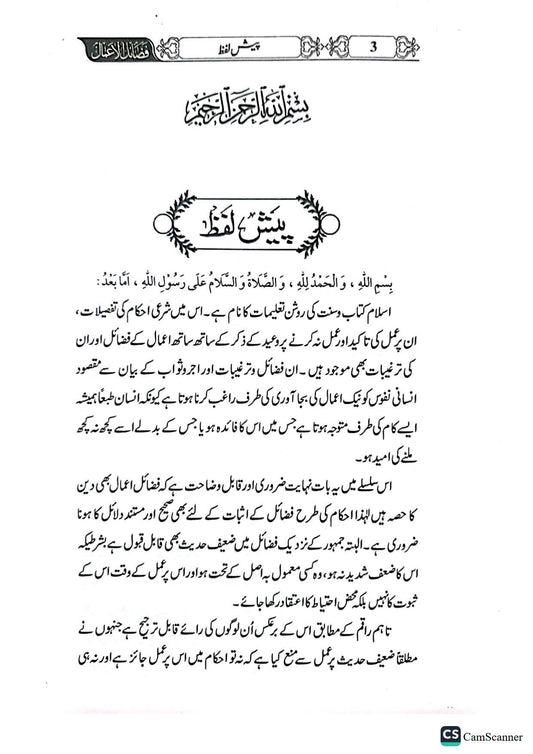 فضائل الاعمال
پیش لفظ
3
بِسْمِ اللهِ الرَّحْمٰنِ الرَّحِيْمِ
پیش لفظ
بِسْمِ اللهِ ، وَالْحَمْدُ لِلّٰهِ ، وَالصَّلَاةُ وَالسَّلَامُ عَلٰى رَسُوْلِ اللهِ ، اَمَّا بَعْدُ :
اسلام کتاب وسنت کی روشن تعلیمات کا نام ہے۔ اس میں شرعی احکام کی تفصیلات ،
ان پر عمل کی تاکید اور عمل نہ کرنے پر وعید کے ذکر کے ساتھ ساتھ اعمال کے فضائل اور ان
کی ترغیبات بھی موجود ہیں ۔ ان فضائل وترغیبات اور اجر وثواب کے بیان سے مقصود
انسانی نفوس کو نیک اعمال کی بجا آوری کی طرف راغب کرنا ہوتا ہے کیونکہ انسان طبعاً ہمیشہ
ایسے کام کی طرف متوجہ ہوتا ہے جس میں اس کا فائدہ ہو یا جس کے بدلے اسے کچھ نہ کچھ
ملنے کی امید ہو۔
اس سلسلے میں یہ بات نہایت ضروری اور قابل وضاحت ہے کہ فضائل اعمال بھی دین
کا حصہ ہیں لہٰذا احکام کی طرح فضائل کے اثبات کے لئے بھی صحیح اور مستند دلائل کا ہونا
ضروری ہے ۔ البتہ جمہور کے نزدیک فضائل میں ضعیف حدیث بھی قابل قبول ہے بشرطیکہ
اس کا ضعف شدید نہ ہو، وہ کسی معمول بہ اصل کے تحت ہو اور اس پر عمل کے وقت اس کے
ثبوت کا نہیں بلکہ محض احتیاط کا اعتقاد رکھا جائے۔
تاہم راقم کے مطابق اس کے برعکس اُن لوگوں کی رائے قابل ترجیح ہے جنہوں نے
مطلقاً ضعیف حدیث پر عمل سے منع کیا ہے کہ نہ تو احکام میں اس پر عمل جائز ہے اور نہ ہی
CS CamScanner